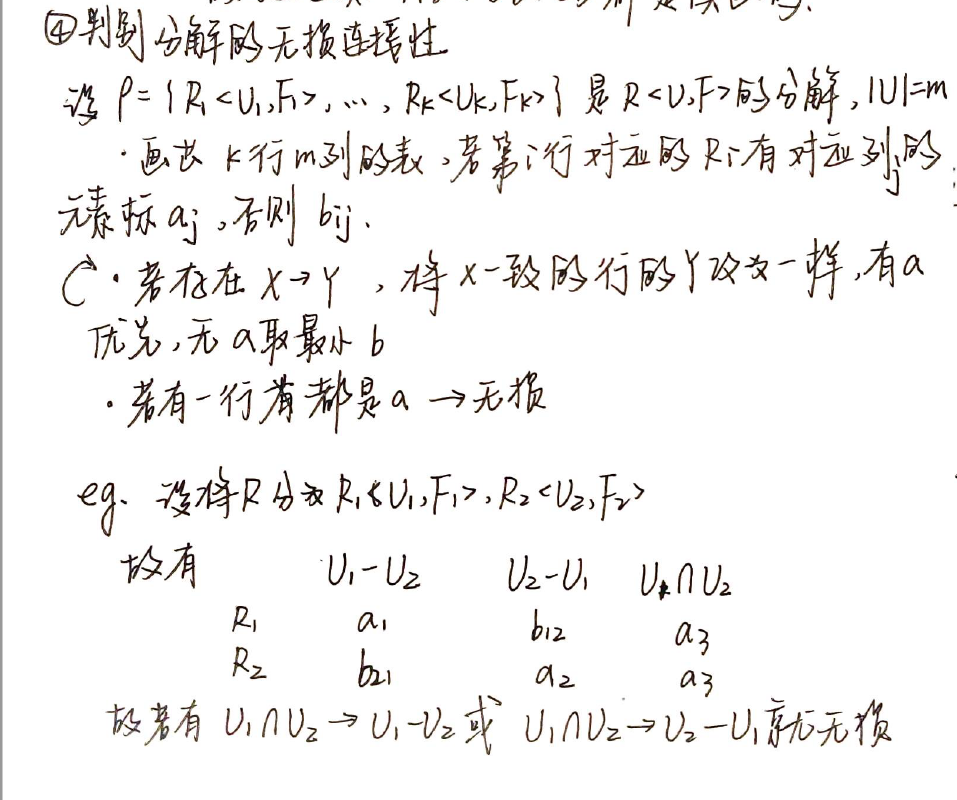 ④判别分解的无损连接性
设 ρ={R₁<U₁,F₁>, …, Rₖ<Uₖ,Fₖ>} 是 R<U,F>的分解, |U|=m
· 画出 k行m列的表, 若第i行对应的 Rᵢ有对应列j的
元素标 aⱼ, 否则 bᵢⱼ.
· 若存在 X→Y , 将 X一致的行的Y改为一样, 有a
优先, 无 a取最小 b
· 若有一行都是a →无损
eg. 设将R分为R₁<U₁,F₁>, R₂<U₂,F₂>
故有 U₁-U₂ U₂-U₁ U₁∩U₂
R₁ a₁ b₁₂ a₃
R₂ b₂₁ a₂ a₃
故若有 U₁∩U₂→U₁-U₂ 或 U₁∩U₂→U₂-U₁就无损